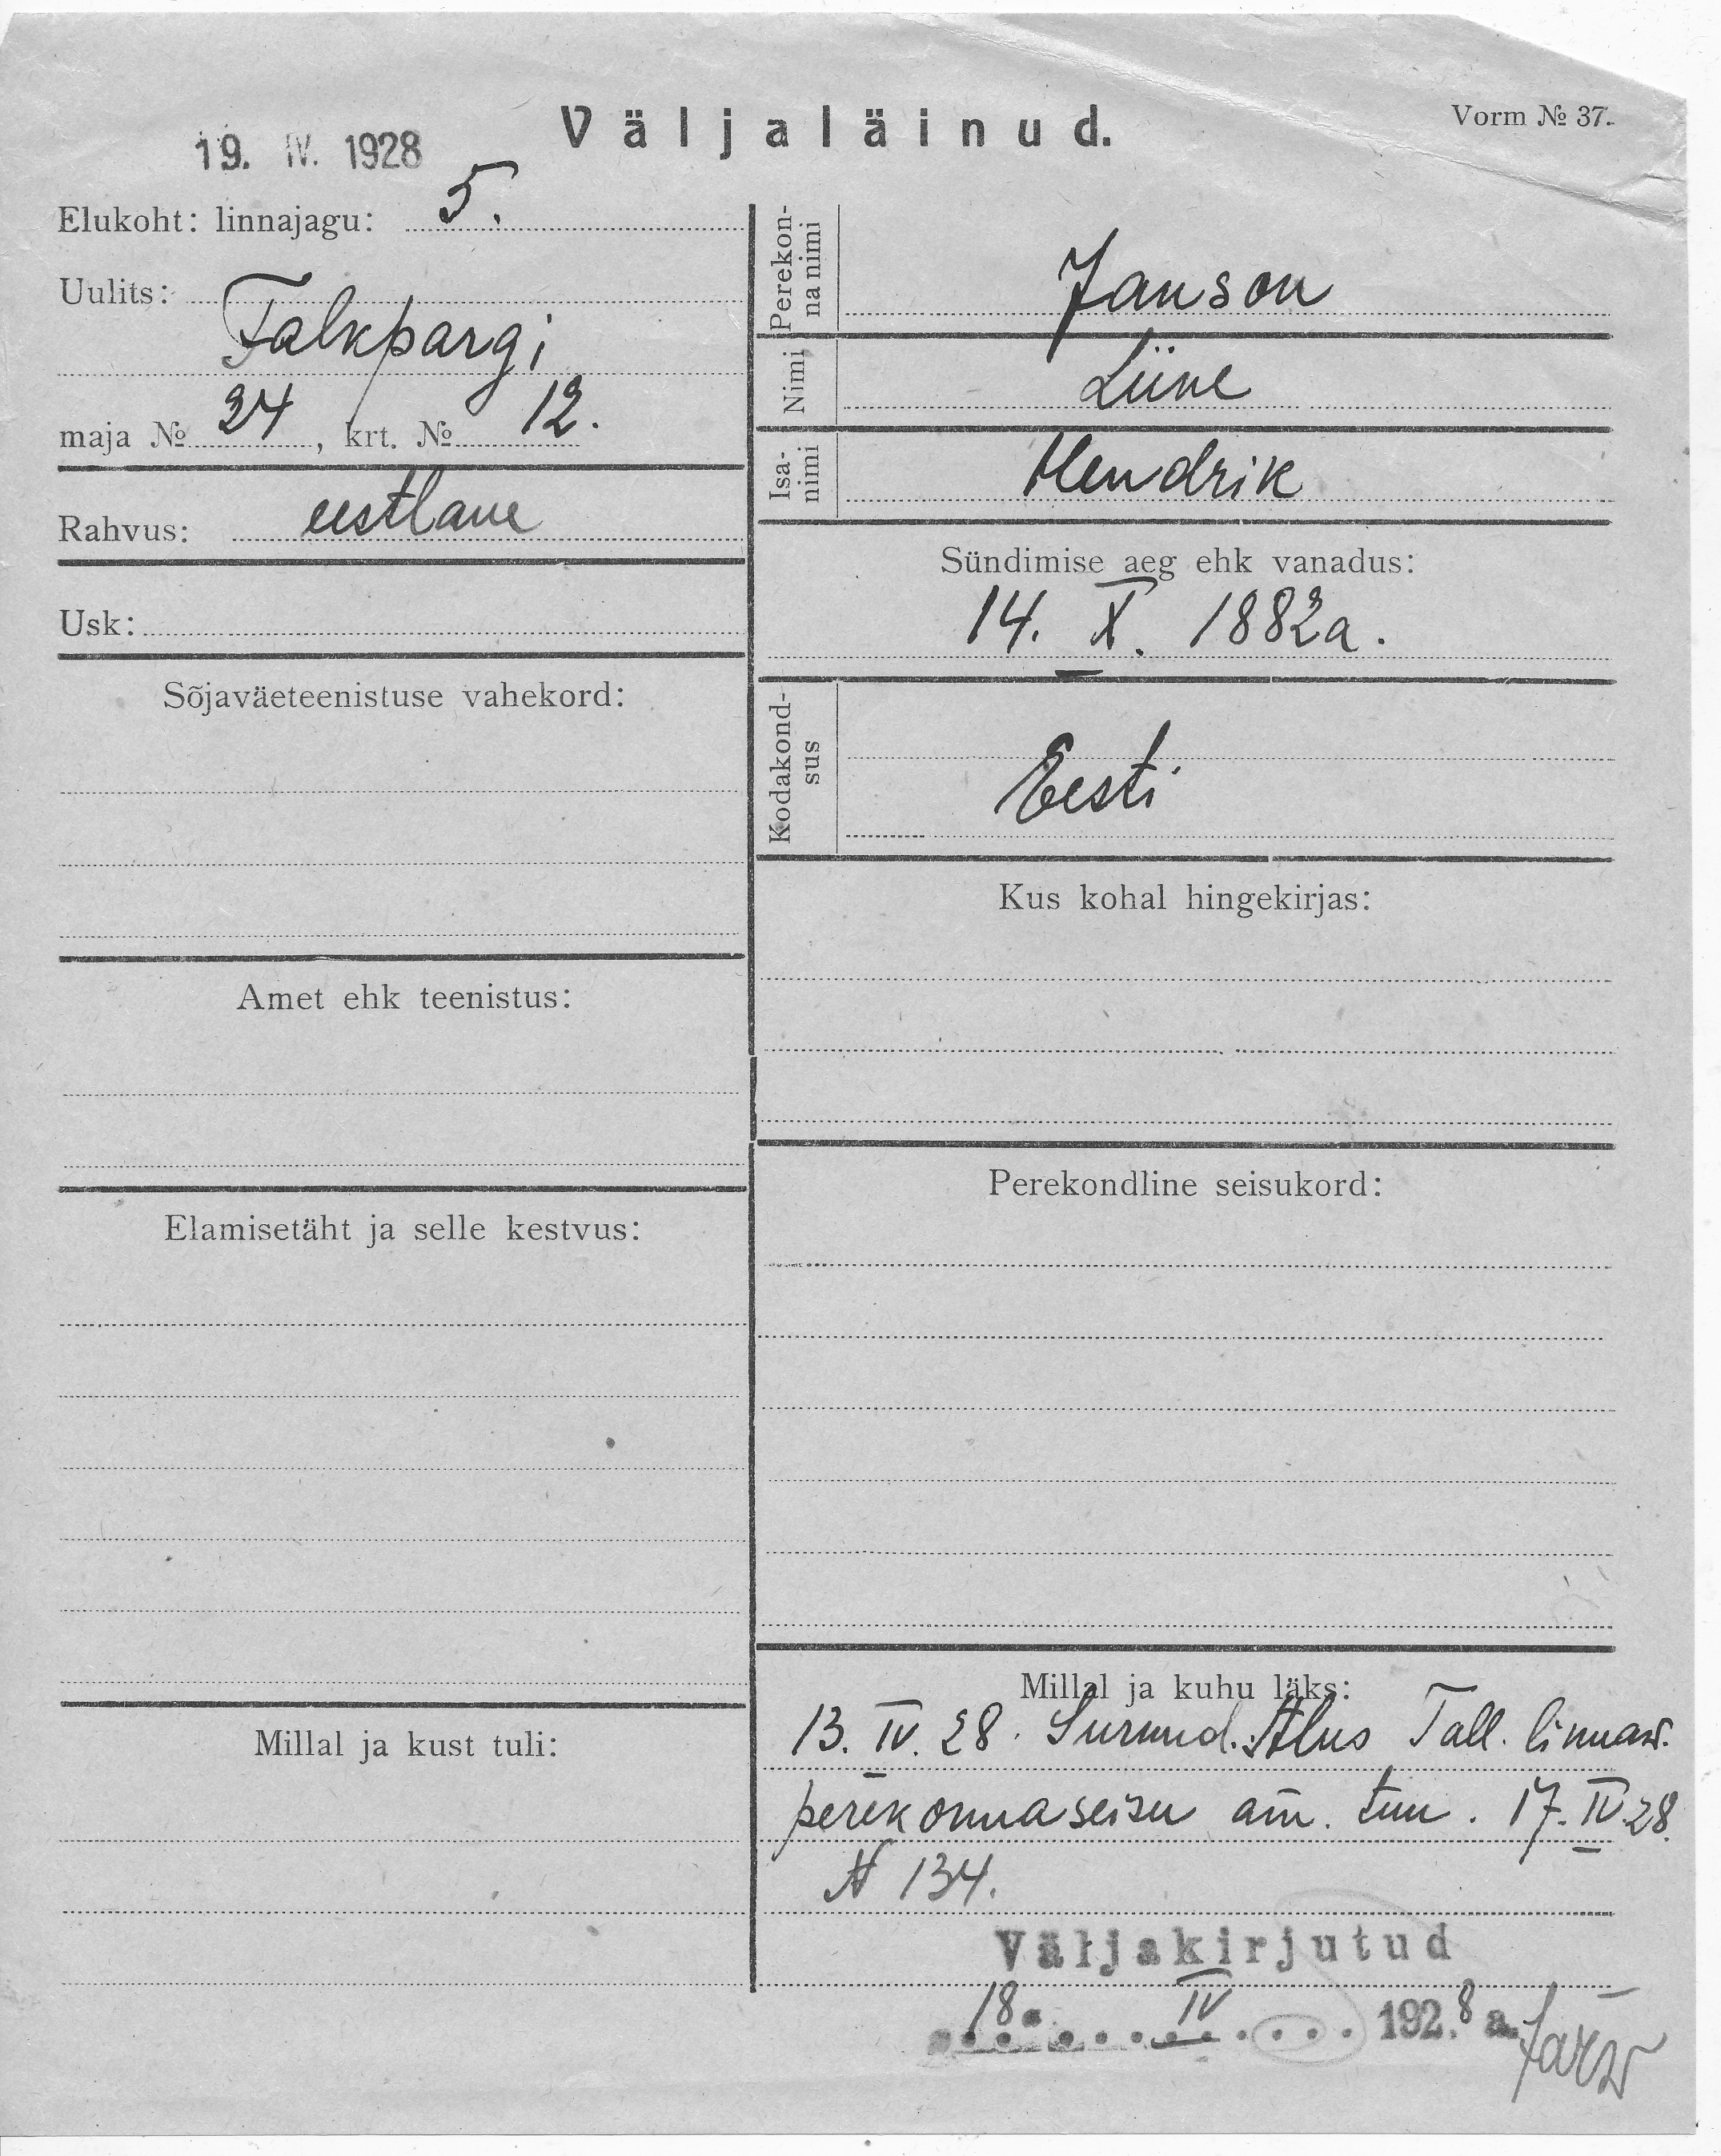 Väljaläinud.
Vorm № 37.
19. IV. 1928
Elukoht: linnajagu: 5.
Uulits:
Falkpargi
maja № 24, krt. № 12.
Rahvus: eestlane
Usk:
Sõjaväeteenistuse vahekord:
Amet ehk teenistus:
Elamisetäht ja selle kestvus:
Millal ja kust tuli:
Perekon-
na nimi
Janson
Nimi
Liine
Isa-
nimi
Hendrik
Sündimise aeg ehk vanadus:
14. X. 1882a.
Kodakond-
sus
Eesti
Kus kohal hingekirjas:
Perekondline seisukord:
Millal ja kuhu läks:
13. IV. 28. Surnud. Alus Tall. linnaw.
perekonnaseisu am. tun. 17. IV 28.
N 134.
Väljakirjutud
18. IV 1928 a.
Järw